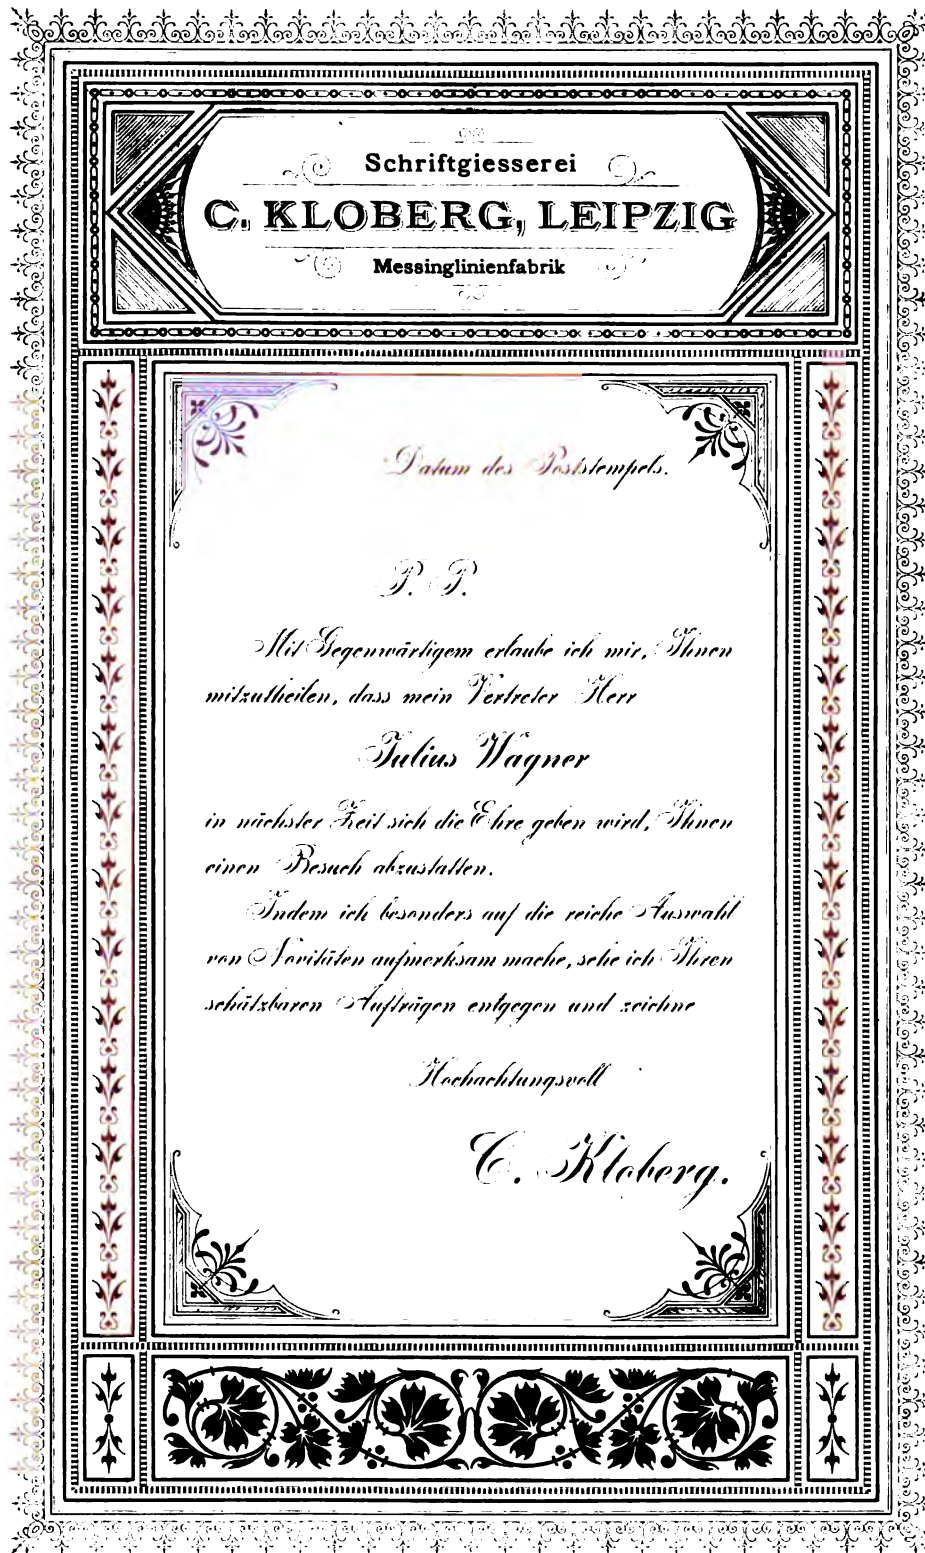 Schriftgiesserei
C. KLOBERG, LEIPZIG
Messinglinienfabrik
Datum des Poststempels.
P. P.
Mit Gegenwärtigem erlaube ich mir, Ihnen
mitzutheilen, dass mein Vertreter Herr
Julius Wagner
in nächster Zeit sich die Ehre geben wird, Ihnen
einen Besuch abzustatten.
Indem ich besonders auf die reiche Auswahl
von Novitäten aufmerksam mache, sehe ich Ihren
schätzbaren Aufträgen entgegen und zeichne
Hochachtungsvoll
C. Kloberg.